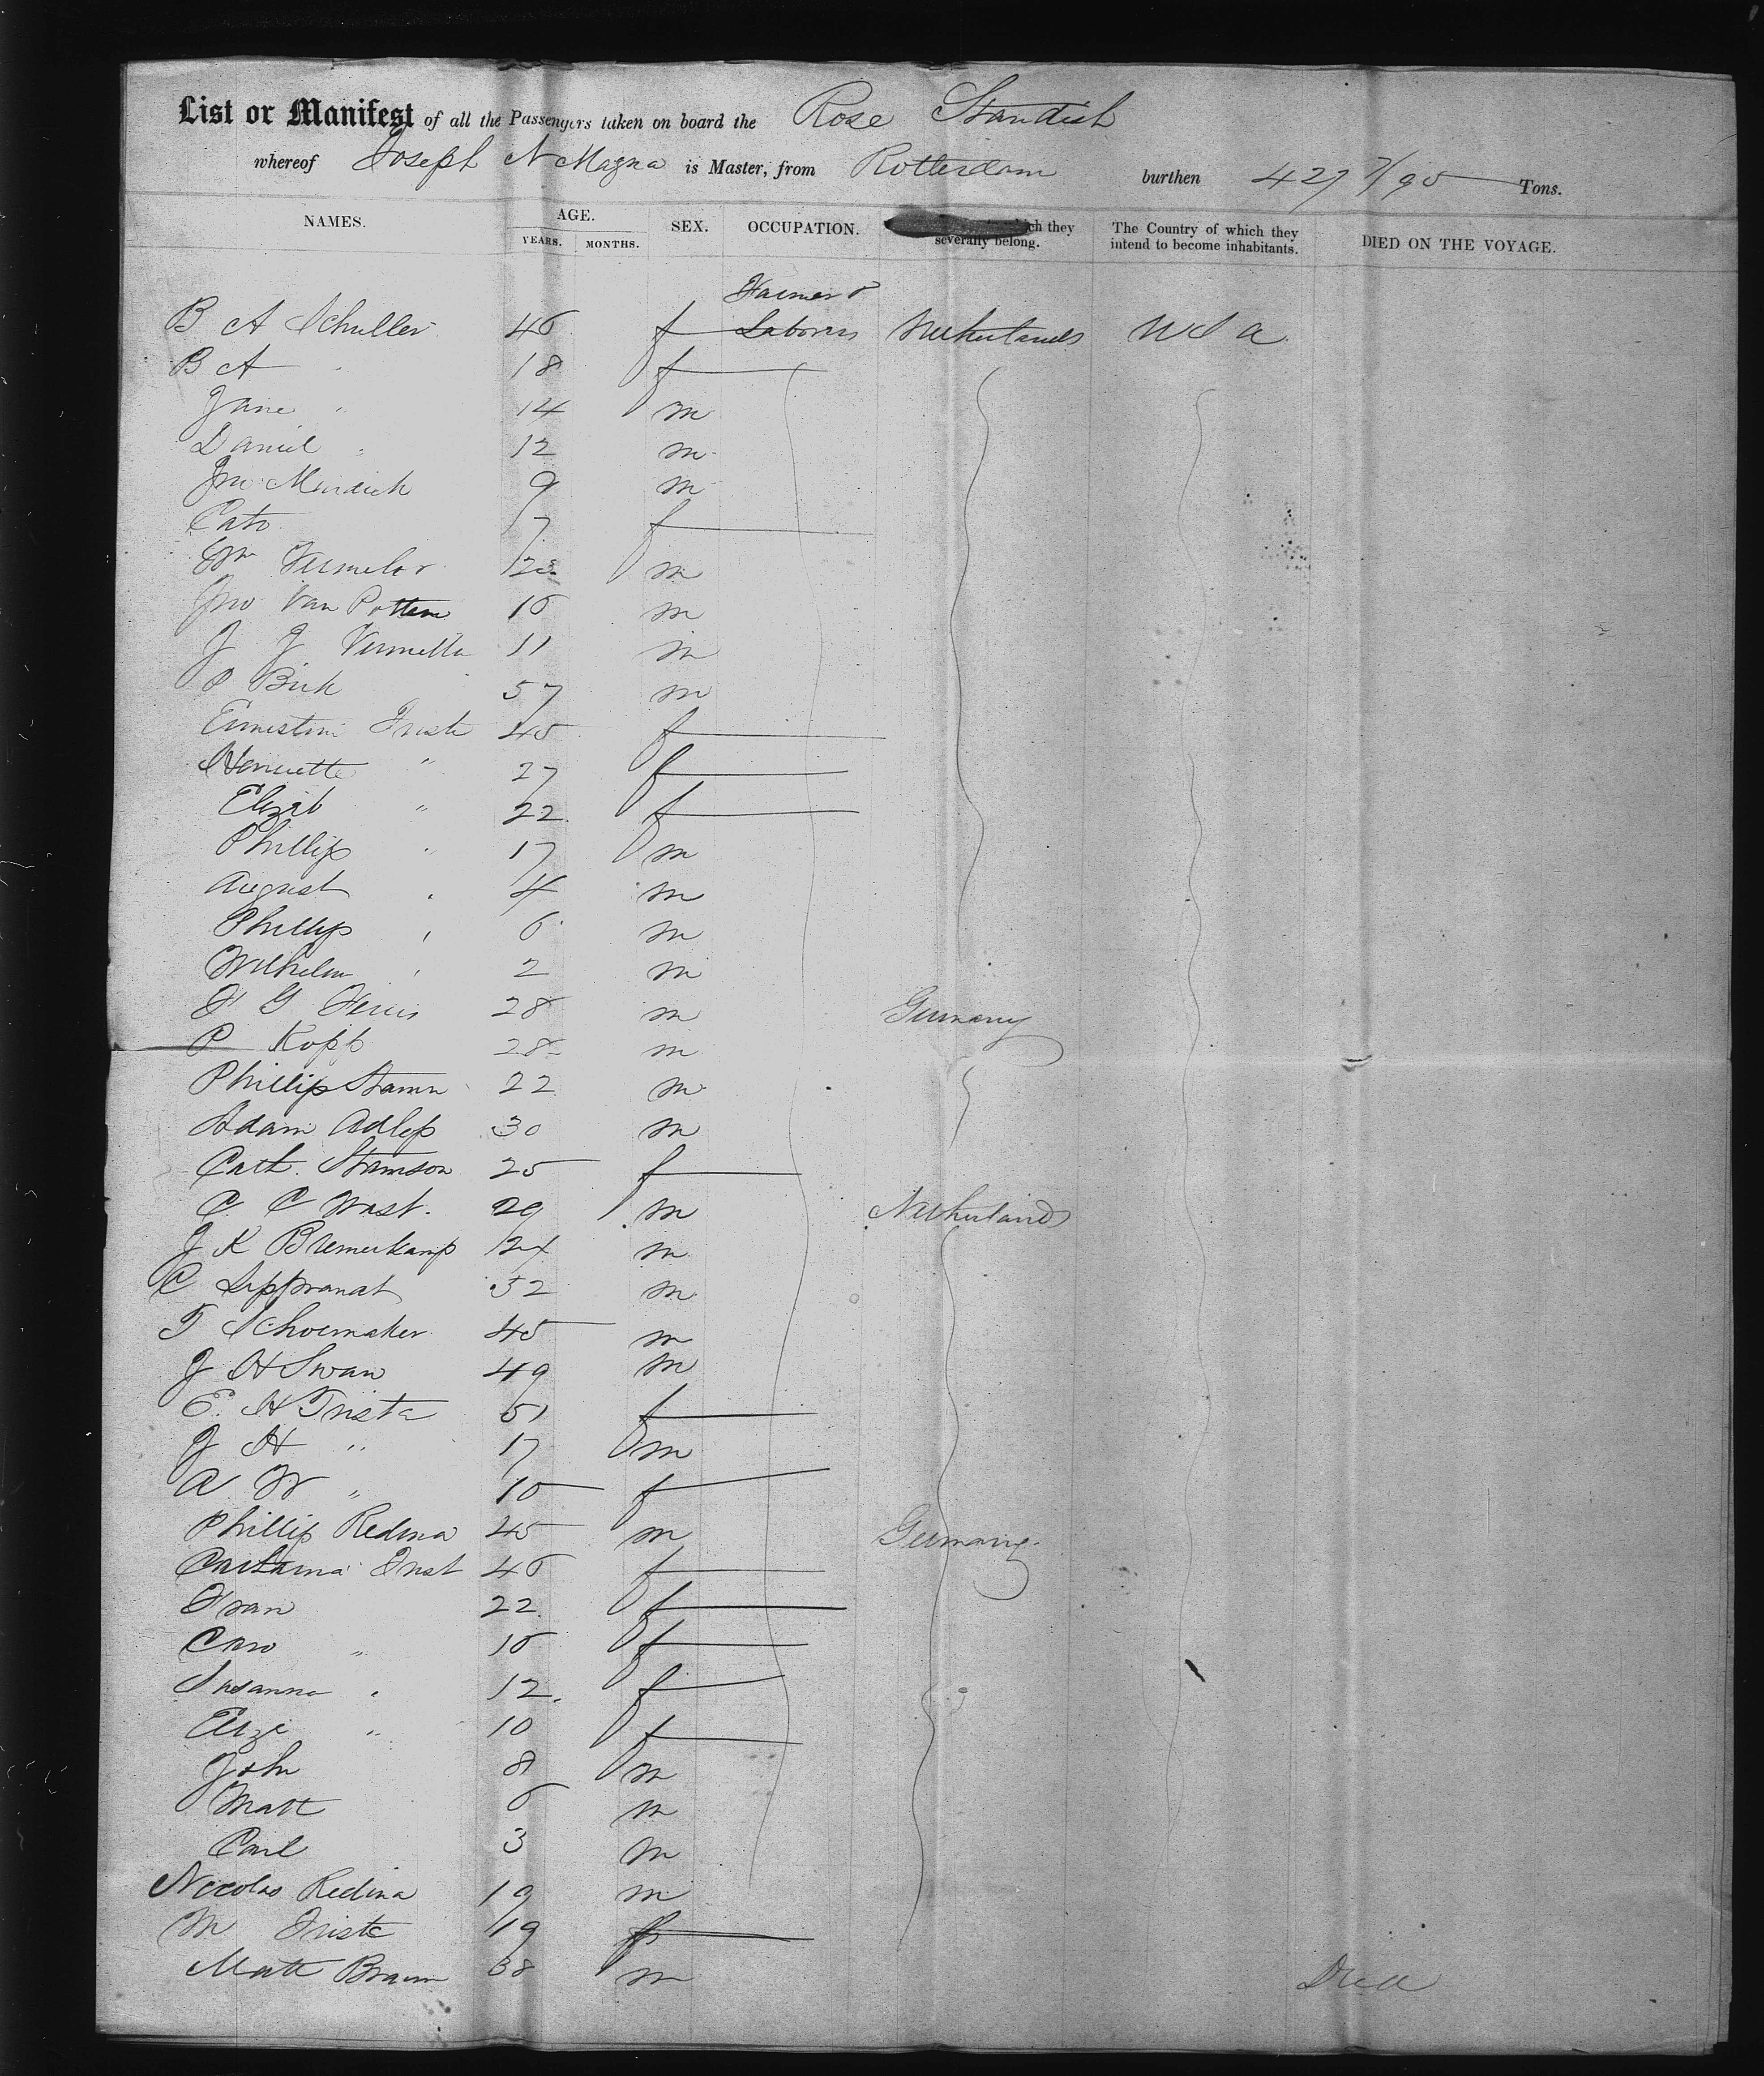 List or Manifest of all the Passengers taken on board the Rose Standish
whereof Joseph N Magna is Master, from Rotterdam burthen 427 7/95 Tons.
NAMES. AGE. YEARS. MONTHS. SEX. OCCUPATION. ch they severally belong. The Country of which they intend to become inhabitants. DIED ON THE VOYAGE.
Farmer &
B A Schuller 46 f Laborers Netherlands U S A
B A " 18 f
Jane " 14 m
Daniel " 12 m
9 m
Cato 7 f
Wm m
Jno Van 16 m
J J 11 m
P 57 m
45 f
Henriette " 27 f
Elizab " 22 f
Phillip " 17 m
August " 4 m
Phillip " 6 m
Wilhelm " 2 m
F G 28 m Germany
P Kopp 28 m
Phillip Stamm 22 m
Adam 30 m
Cath. Stamson 25 f
C C Wast. 29 m Netherlands
J K Bremerkamp 24 m
C 32 m
T Schoemaker 45 m
J H Swan 49 m
E. H Trista 51 f
J H " 17 m
A W " 10 f
Phillip Redina 45 m Germany
46 f
Fran 22 f
Caro " 16 f
Susanna " 12 f
Elize " 10 f
John 8 m
Matt 6 m
Carl 3 m
Nicolas Redina 19 m
M 19 f
Matt Braun 38 m Died